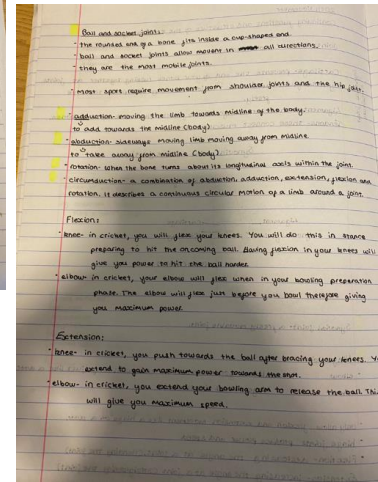 Ball and socket joints:
- the rounded end of a bone fits inside a cup-shaped end.
- ball and socket joints allow movent in all directions.
- they are the most mobile joints.
- most sport require movement from shoulder joints and the hip joint.
- adduction- moving the limb towards midline of the body.
to add towards the midline (body)
- abduction- sideways moving limb moving away from midline
to take away from midline (body)
- rotation- when the bone turns about its longitudinal axis within the joint.
- circumduction- a combination of abduction, adduction, extension, flexion and
rotation. It describes a continuous circular motion of a limb around a joint.
Flexion:
- knee- in cricket, you will flex your knees. You will do this in stance
preparing to hit the oncoming ball. Having flexion in your knees will
give you power to hit the ball harder.
- elbow- in cricket, your elbow will flex when in your bowling preparation
phase. The elbow will flex just before you bowl therefore giving
you maximum power.
Extension:
- knee- in cricket, you push towards the ball after bracing your knees.
extend to gain maximum power towards the shot.
- elbow- in cricket, you extend your bowling arm to release the ball.
will give you maximum speed.